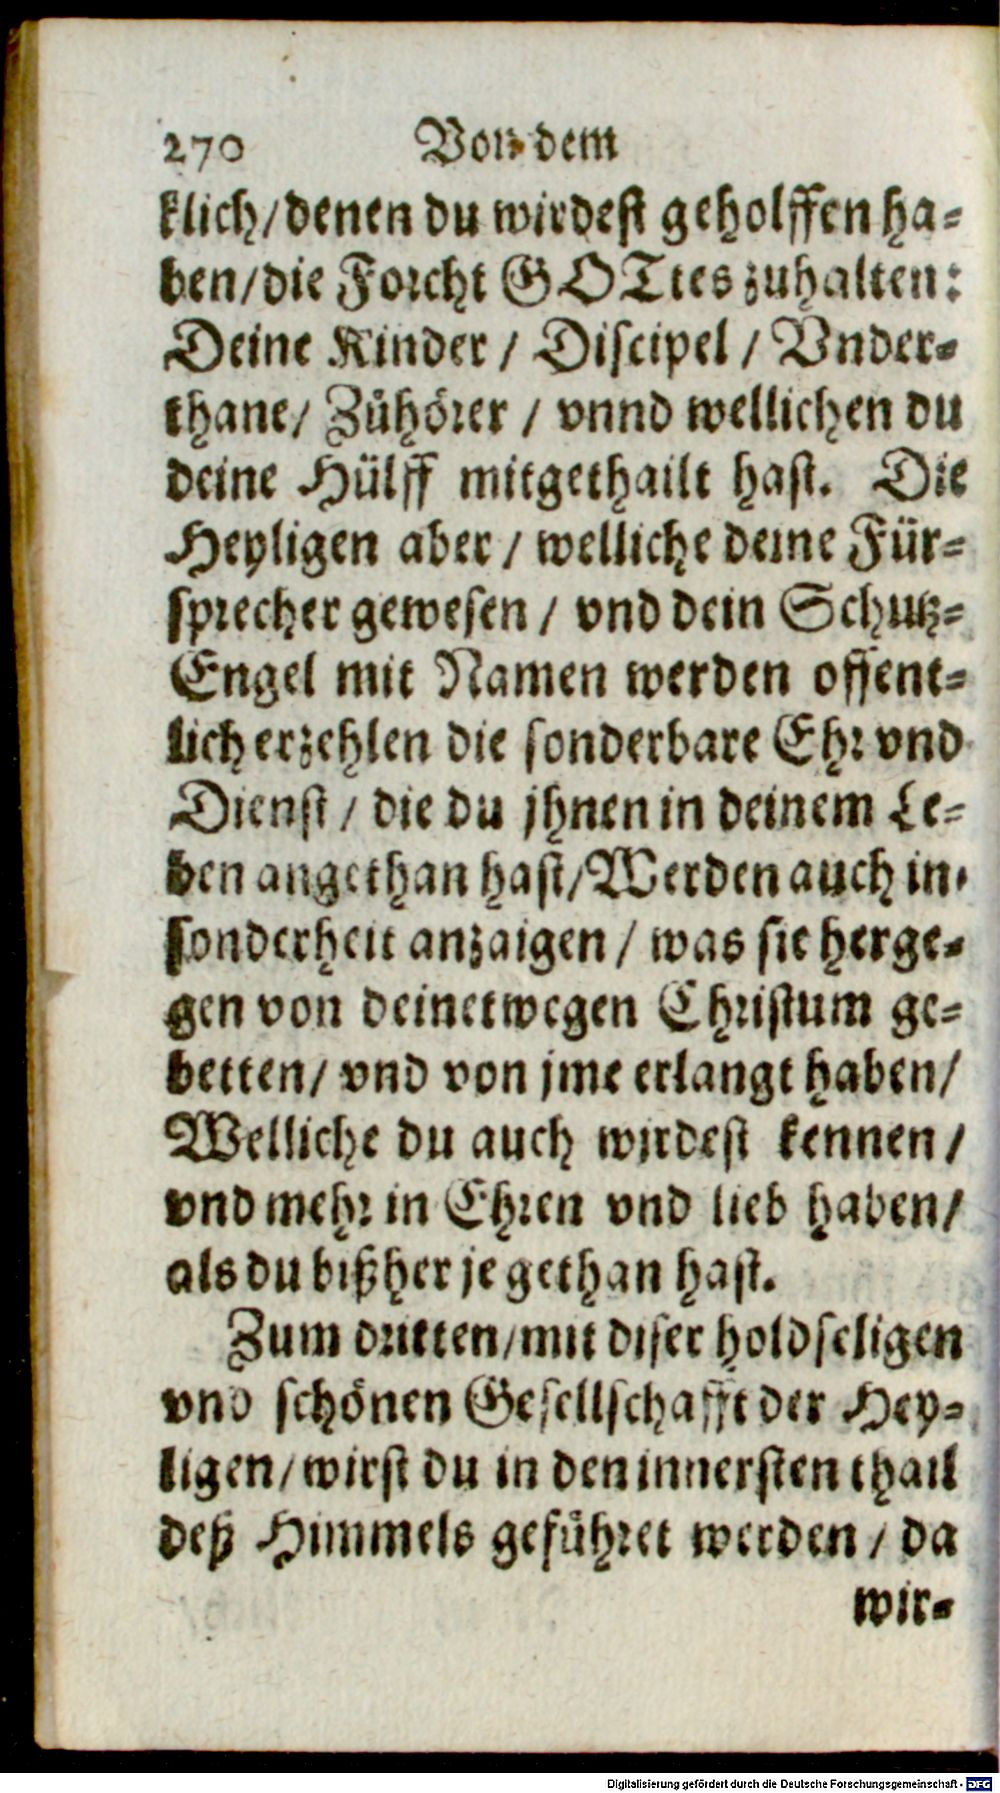 270 Von dem
klich/denen du wirdest geholffen ha-
ben/die Forcht GOTtes zuhalten:
Deine Kinder / Discipel / Vnder-
thane/ Zůhörer / vnnd wellichen du
deine Hülff mitgethailt hast. Die
Heyligen aber / welliche deine Für-
sprecher gewesen / vnd dein Schutz-
Engel mit Namen werden offent-
lich erzehlen die sonderbare Ehr vnd
Dienst / die du jhnen in deinem Le-
ben angethan hast/Werden auch in-
sonderheit anzaigen / was sie herge-
gen von deinetwegen Christum ge-
betten/ vnd von jme erlangt haben/
Welliche du auch wirdest kennen/
vnd mehr in Ehren vnd lieb haben/
als du bißher je gethan hast.
Zum dritten/mit diser holdseligen
vnd schönen Gesellschafft der Hey-
ligen/wirst du in den innersten thail
deß Himmels geführet werden / da
wir-
Digitalisierung gefördert durch die Deutsche Forschungsgemeinschaft - DFG